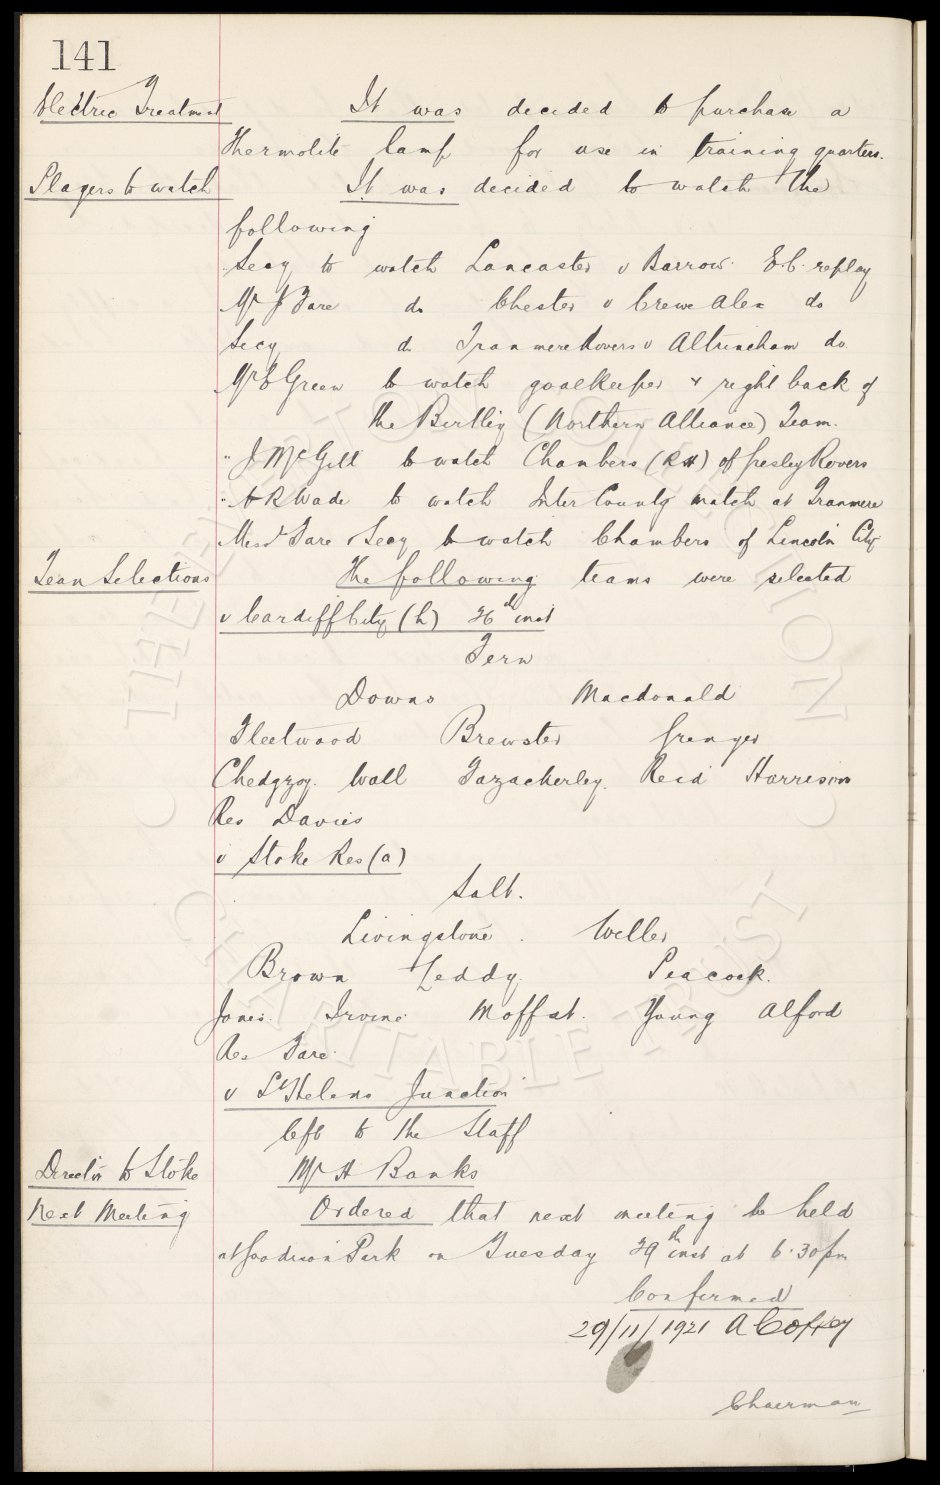 141
Electric Treatment It was decided to purchase a
Thermolite lamp for use in training quarters.
Players to watch It was decided to watch the
following
Secy to watch Lancaster v Barrow. E.C. replay
Mr J Fare do Chester v Crewe Alex do
Secy do Tranmere Rovers v Altrincham do
Mr E Green to watch goalkeeper & right back of
the Birtley (Northern Alliance) Team.
" J McGill to watch Chambers (RH) of Gresley Rovers
" A R Wade to watch Inter County match at Tranmere
Messrs Fare & Secy to watch Chambers of Lincoln City
Team Selections The following teams were selected
v Cardiff City (h) 26th inst
Fern
Downs Macdonald
Fleetwood Brewster Grenyer
Chedgzoy. Wall Fazackerley. Reid Harrison
Res Davies
v Stoke Res (a)
Salt.
Livingstone. Weller
Brown Leddy. Peacock.
Jones. Irvine. Moffat. Young Alford
Res Fare.
v St Helens Junction
left to the Staff
Director to Stoke Mr H Banks
Next Meeting Ordered that next meeting be held
at Goodison Park on Tuesday 29th inst at 6.30pm
Confirmed
29/11/1921 A Coffey
Chairman
THE EVERTON COLLECTION
CHARITABLE TRUST